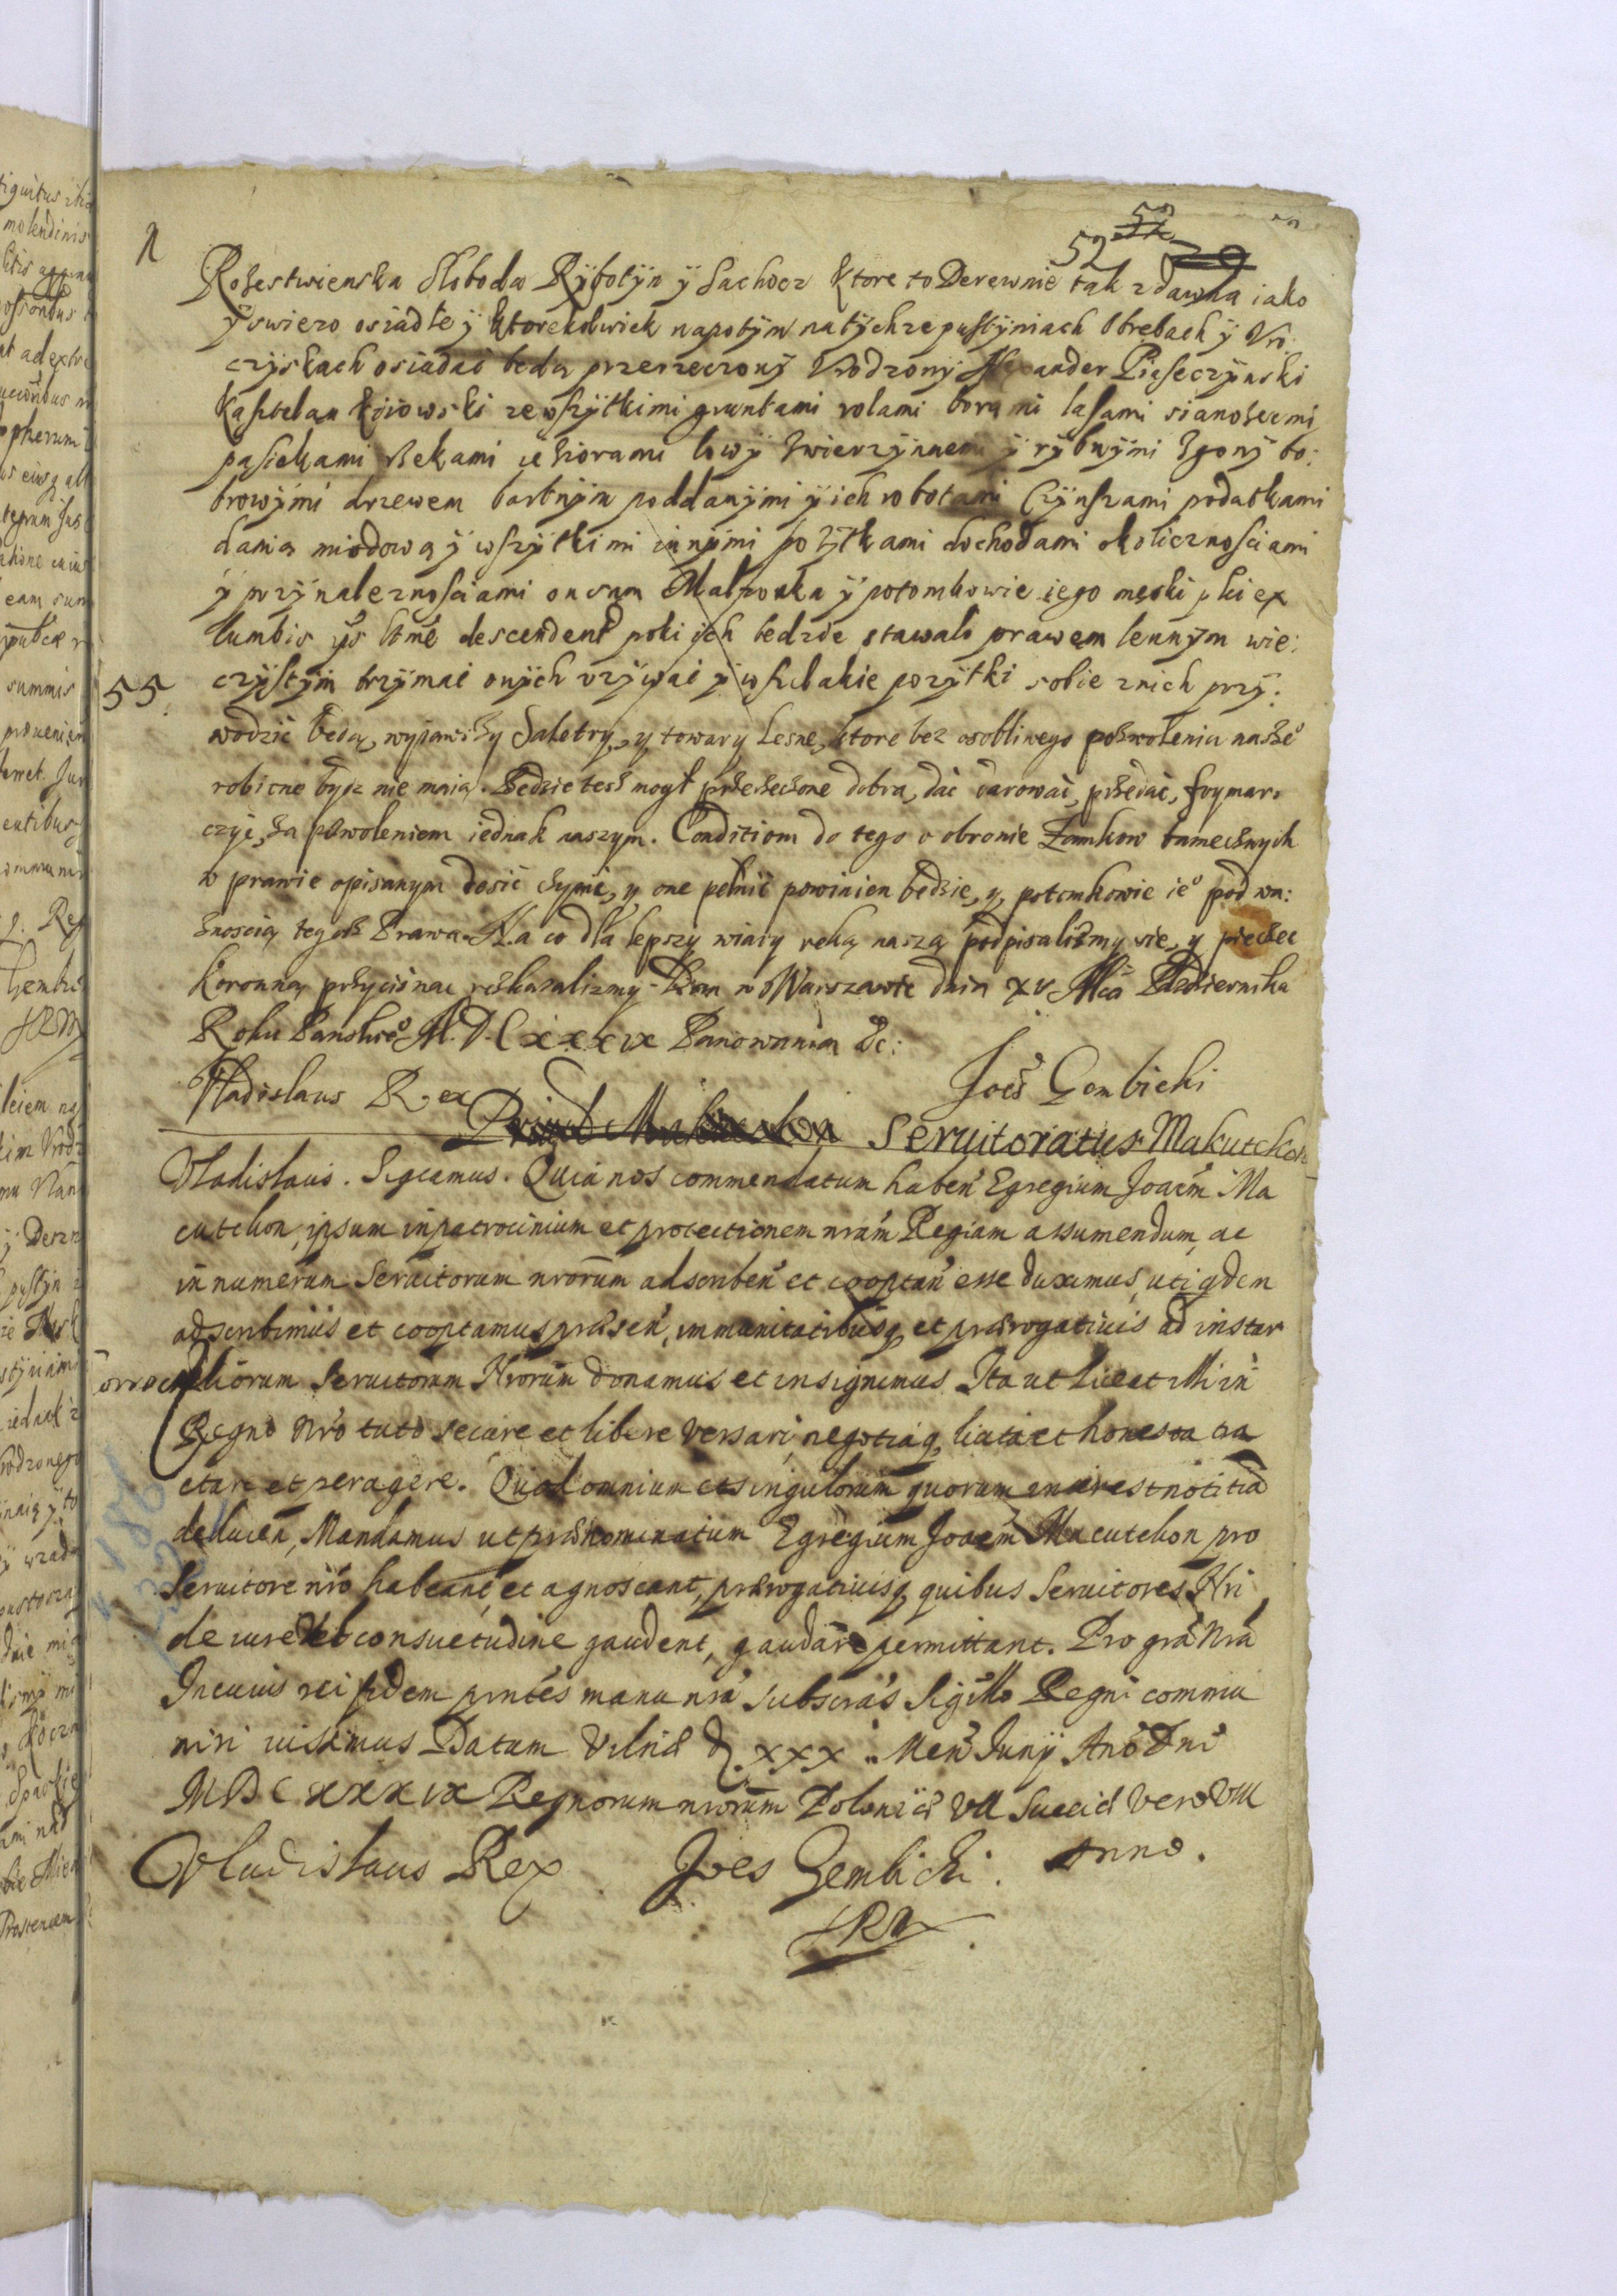 52
Rożestwienska Słoboda Rÿbotÿn ÿ Sachocz Ktore to Derewnie tak zdawna iako
ÿ swiezo osiadłe ÿ ktorekolwiek napotÿm natÿchze pustÿniach Obrębach ÿ Vro:
czÿskach osiadać będą przerzeczonÿ Vrodzonÿ Piaseczÿnski
Kasztelan Kÿiowski ze wszÿtkimi gruntami rolami borami lasami sianożęćmi
pasiekami Rzekami ieziorami łowÿ Zwierzÿnnemi ÿ rÿbnÿmi Zgonÿ bo:
browÿmi drzewem bartnÿm poddanÿmi ÿ ich robotami Czÿnszami podatkami
danią miodową ÿ wszÿtkimi innÿmi pozÿtkami dochodami okolicznościami
ÿ przÿnależnościami on sam Małżonka ÿ potomkowie iego męski płci ex
lumbis descendent poki ich będzie stawało prawem lennÿm wie:
55 czÿstÿm trzÿmać onÿch vzÿwać ÿ wszelakie pozÿtki sobie znich przÿ:
wodzić będą, wyjąwszy Saletry, y towary Lesne, ktore bez osobliwego pozwolenia nasze°
robione bydz nie maią. Będzie tesz mogł przerzeczone dobra, dać darować, przedać, frymar:
czyć, za pozwoleniem iednak naszym. Conditiom do tego o obronie Zamkow tamecznych
w prawie opisanym dosić czynić, y one pełnić powinien będzie, y potomkowie ie° pod wa:
żnoscią tegosz Prawa. Na co dla lepszy wiary ręką naszą podpisalismy się, y pieczęć
Koronną przycisnąc roskazalizmy. Dan w Warszawie dnia XV Mca Pazdziernika
Roku Panskie° M. D. C xxxix Panowania &c:
Vladislaus Rex Joẽs Gembicki
Seruitoratus Makutchon
Vladislaus. Sigcamus. Quia nos commendatum haben Egregium Joaem Ma
cutchon, ipsum in patrocinium et protectionem nram Regiam assumendum, ac
in numerum Seruitorum nrorum adscriben et cooptan esse duximus, uti qdem
adscribimus et cooptamus præsen, immunitatibusq et prærogatiuis ad instar
aliorum Seruitorum Nrorum donamus et insignimus Ita ut liceat illi in
Regno Nro tuto secure et libere versari, negotiaq licita et honesta tra
ctare et peragere. Quod omnium et singulorum quorum interest notitiā
deducen, Mandamus ut prænominatum Egregium Joaem Macutchon pro
Seruitore nro habeant, et agnoscant, prærogatiuisq quibus Seruitores Nri
de iure et consuetudine gaudent, gaudere permittant. Pro gra Nra
In cuius rei fidem pntes manu nra subscras Sigillo Regni commu
niri iussimus Datum Vilnæ D. XXX Men Junij Ano Dni
MDCXXXIX Regnorum nrorum Poloniæ VII Sueciæ vero VIII
Anno.
Vladislaus Rex Joes Gembicki.